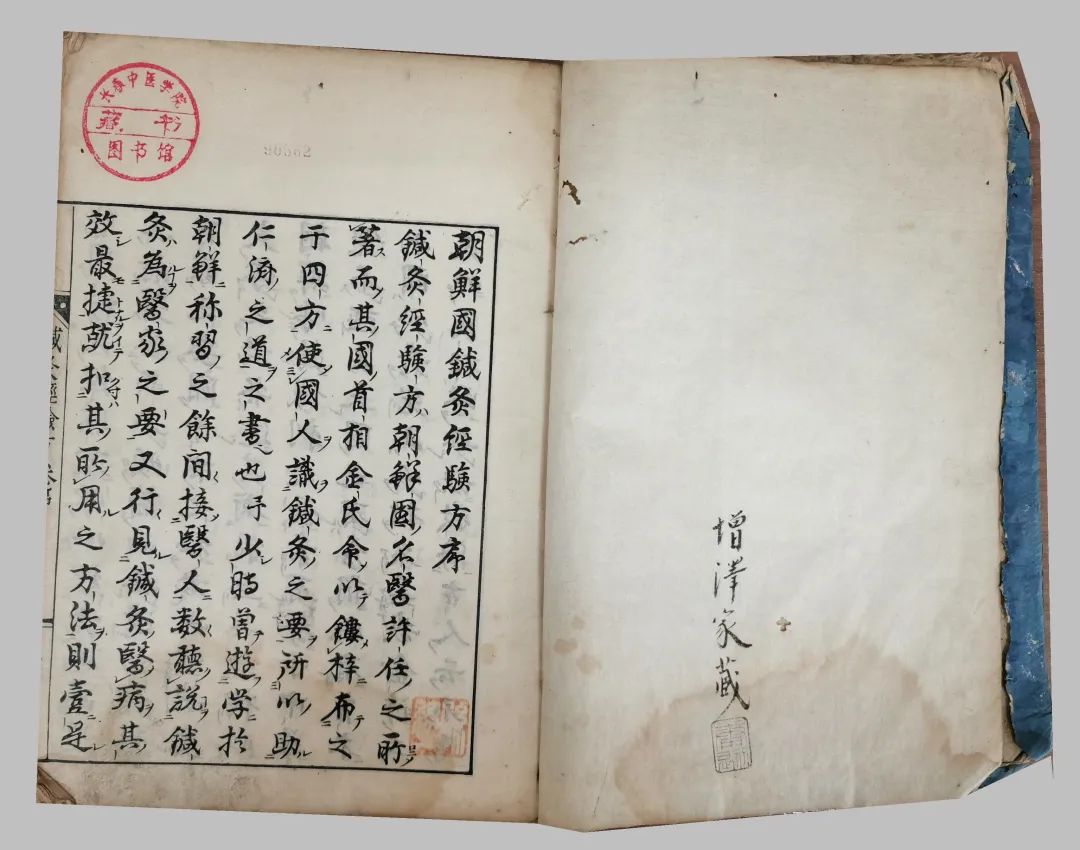 增澤家藏
朝鮮國鍼灸經驗方序
鍼灸經驗方朝鮮國名醫許任之所
著而其國首相金氏命以鏤梓布之
于四方使國人識鍼灸之要所以助
仁濟之道之書也予少時曾遊学於
朝鮮称習之餘間接醫人数聽說鍼
灸為醫家之要又行見鍼灸醫病其
效最捷就扣其所用之方法則壹是
长春中医学院
藏书
图书馆
90562